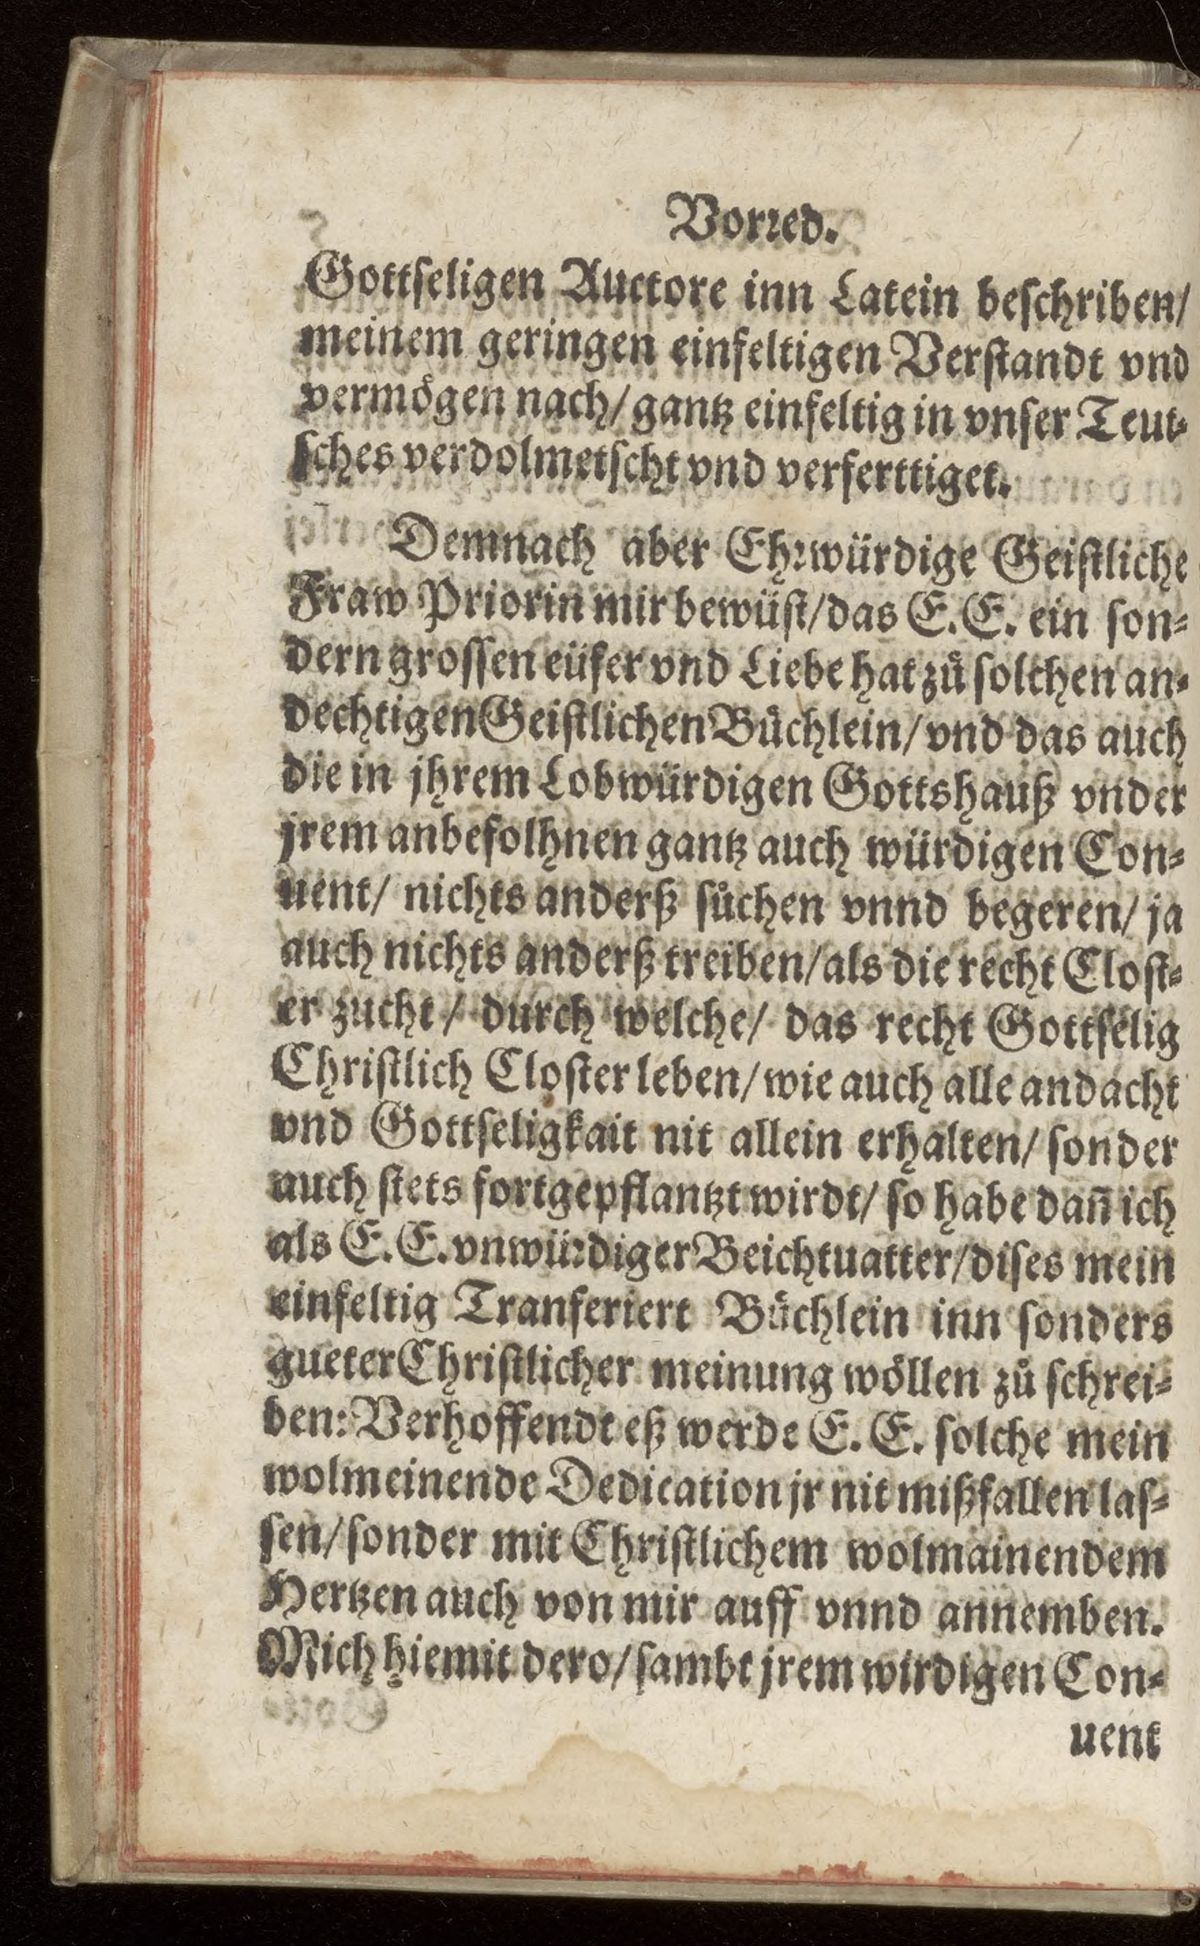 Vorꝛed.
Gottſeligen Auctore inn Latein beſchriben/
meinem geringen einfeltigen Verſtandt vnd
vermoͤgen nach/ gantz einfeltig in vnſer Teut-
ſches verdolmetſcht vnd verferttiget.
Demnach aber Ehꝛwuͤrdige Geiſtliche
Fraw Priorin mir bewuͤſt/ das E. E. ein ſon-
dern groſſen euͤfer vnd Liebe hat zuͦ ſolchen an-
dechtigen Geiſtlichen Buͤchlein/ vnd das auch
die in jhrem Lobwuͤrdigen Gottshauß vnder
jrem anbefolhnen gantz auch wuͤrdigen Con-
uent/ nichts anderß ſuͦchen vnnd begeren/ ja
auch nichts anderß treiben/ als die recht Cloſt-
er zucht/ durch welche/ das recht Gottſelig
Chriſtlich Cloſter leben/ wie auch alle andacht
vnd Gottſeligkait nit allein erhalten/ ſonder
auch ſtets fortgepflantzt wirdt/ ſo habe dañ ich
als E. E. vnwuͤꝛdiger Beichtuatter/ diſes mein
einfeltig Tranſeriert Buͤchlein inn ſonders
gueter Chriſtlicher meinung woͤllen zuͦ ſchrei-
ben: Verhoffendt eß werde E. E. ſolche mein
wolmeinende Dedication jr nit mißfallen laſ-
ſen/ ſonder mit Chriſtlichem wolmainendem
Hertzen auch von mir auff vnnd annemben.
Mich hiemit dero/ ſambt jrem wirdigen Con-
uent